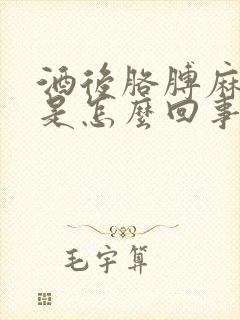 酒後胳膊麻
是怎麼回事
毛宇算